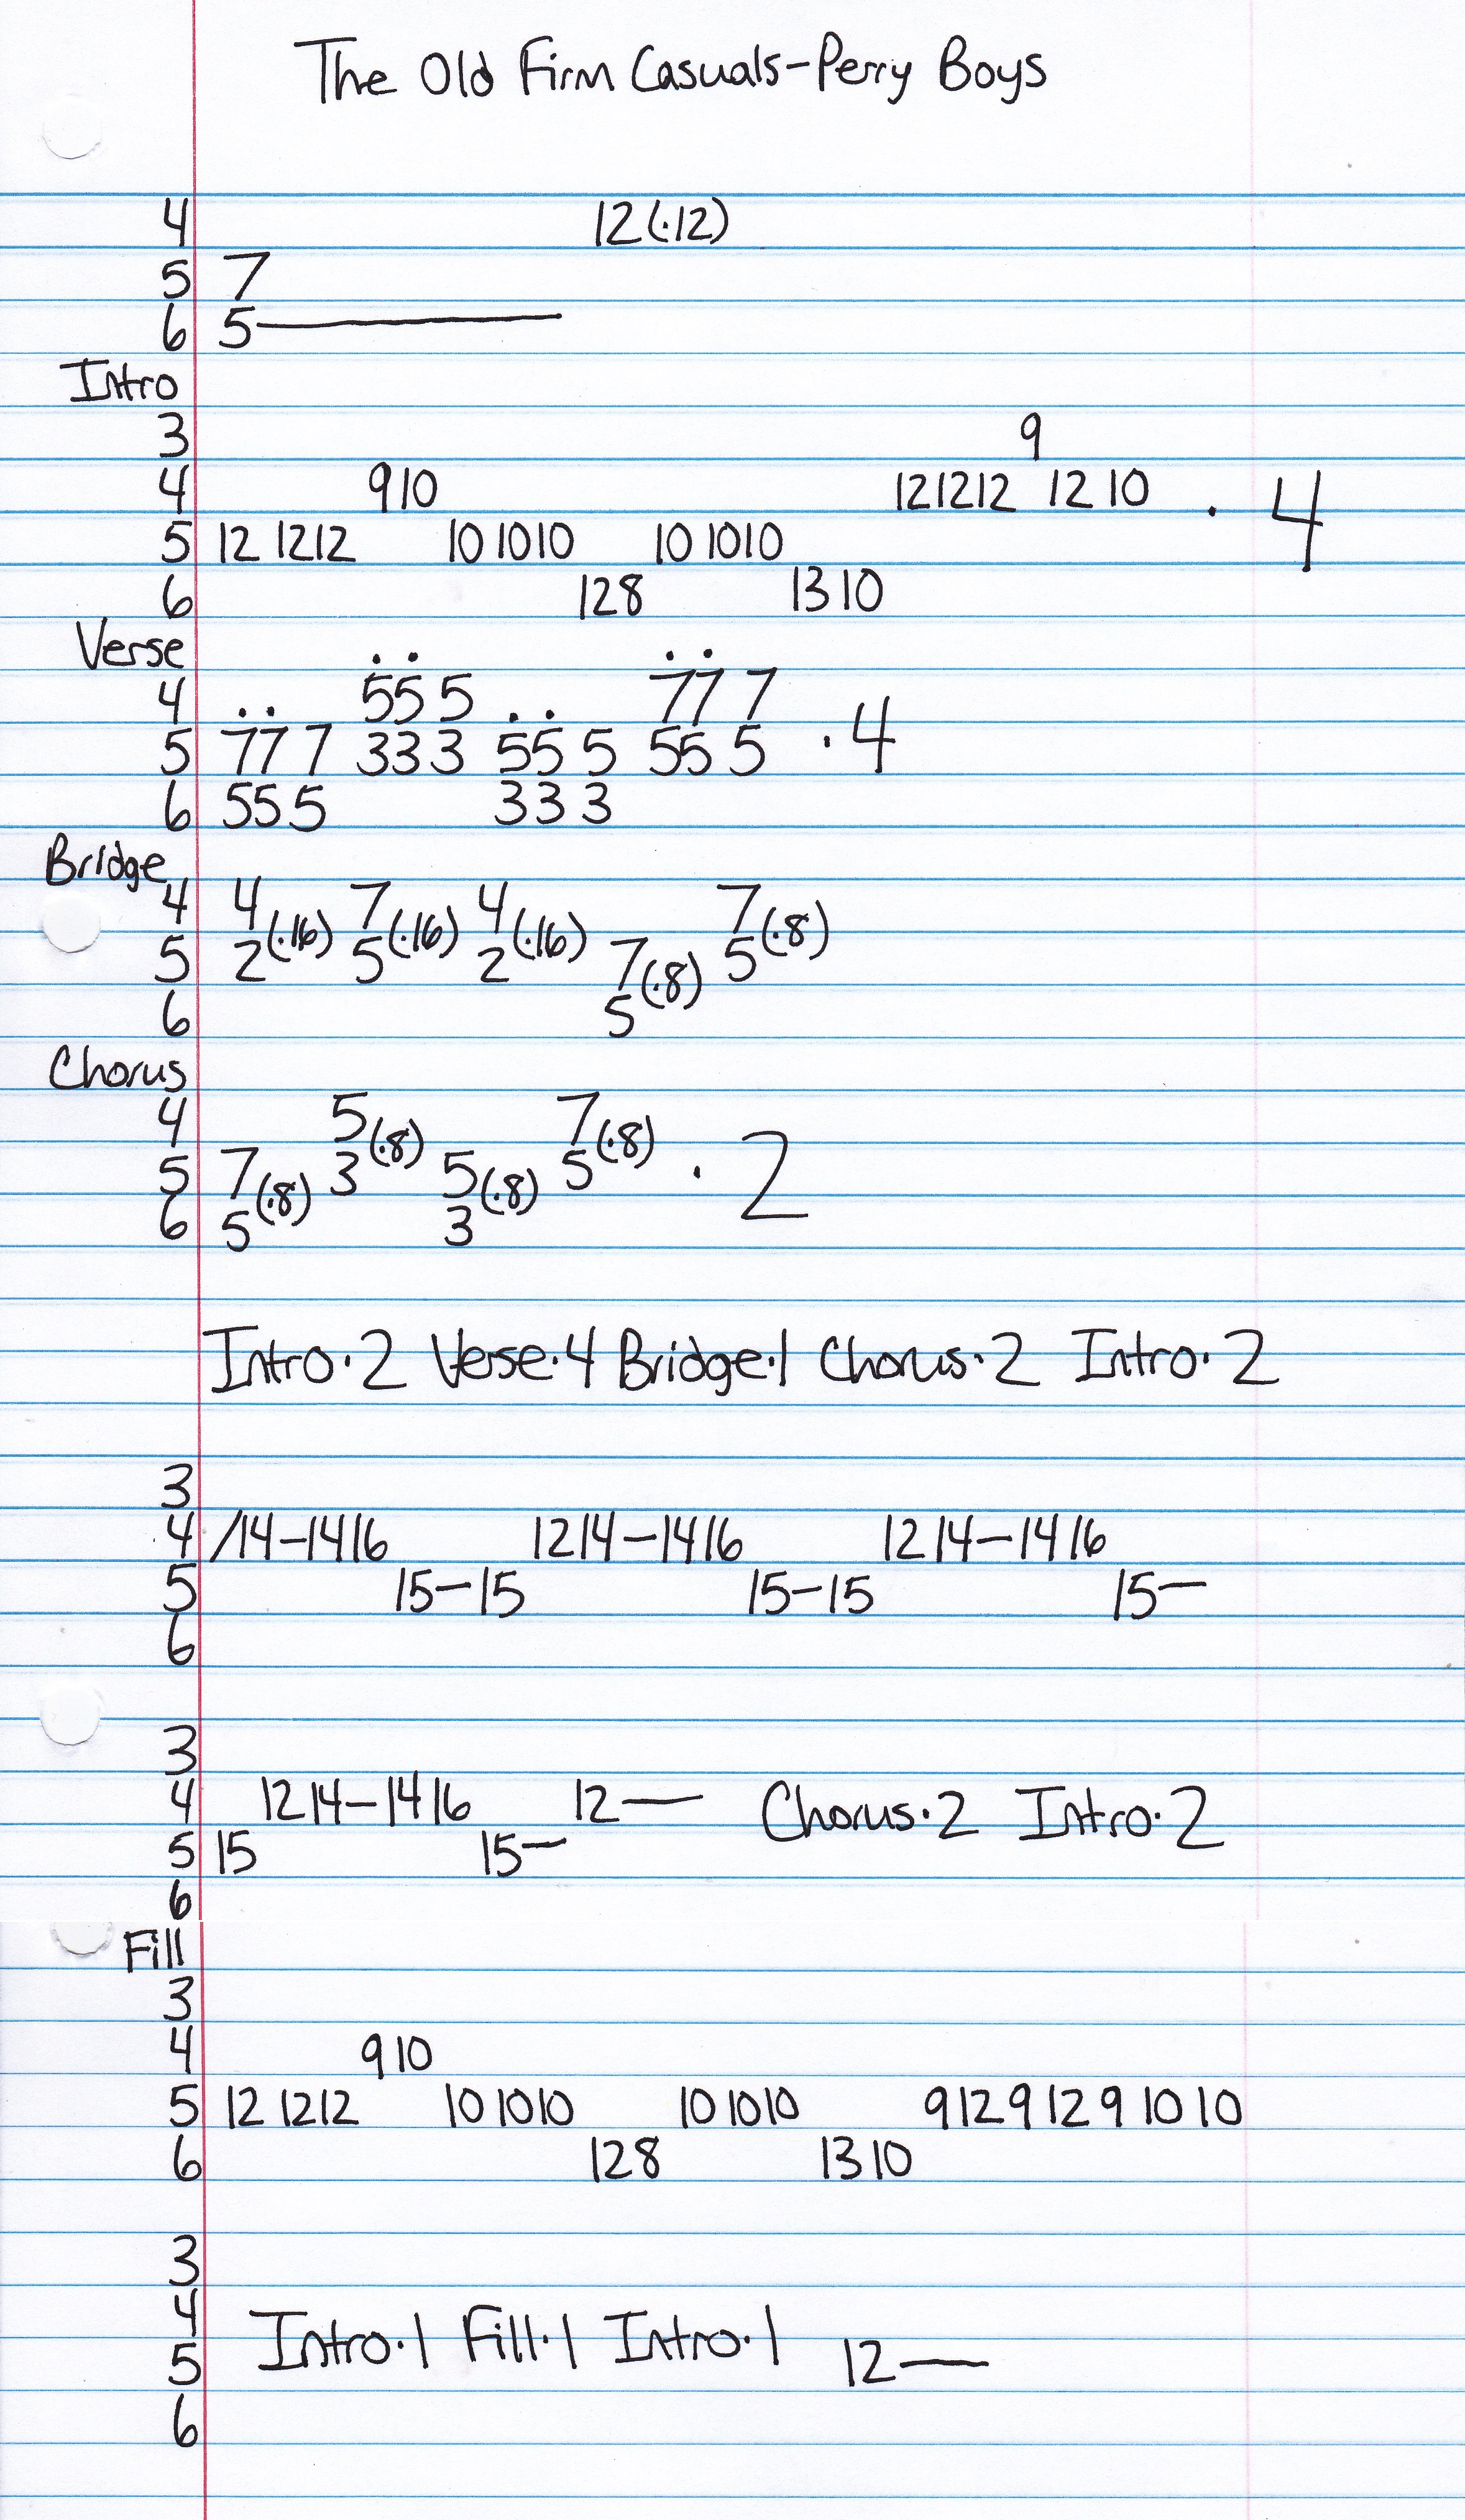 The Old Firm Casuals-Perry Boys
4 12(·12)
5 7
6 5—
Intro
3 9
4 9 10 12 12 12 12 10 · 4
5 12 12 12 10 10 10 10 10 10
6 12 8 13 10
Verse
4 5 5 5 7 7 7
5 7 7 7 3 3 3 5 5 5 5 5 5 · 4
6 5 5 5 3 3 3
Bridge
4 4 (·16) 7 (·16) 4 (·16) 7 (·8)
5 2 5 2 7 (·8) 5
6 5
Chorus
4 5 (·8) 7 (·8)
5 7 (·8) 3 5 (·8) 5 · 2
6 5 3
Intro·2 Verse·4 Bridge·1 Chorus·2 Intro·2
3
4 /14–14 16 12 14–14 16 12 14–14 16
5 15–15 15–15 15—
6
3
4 12 14–14 16 12— Chorus·2 Intro·2
5 15 15—
6
Fill
3
4 9 10
5 12 12 12 10 10 10 10 10 10 9 12 9 12 9 10 10
6 12 8 13 10
3
4
Intro·1 Fill·1 Intro·1
5 12—
6